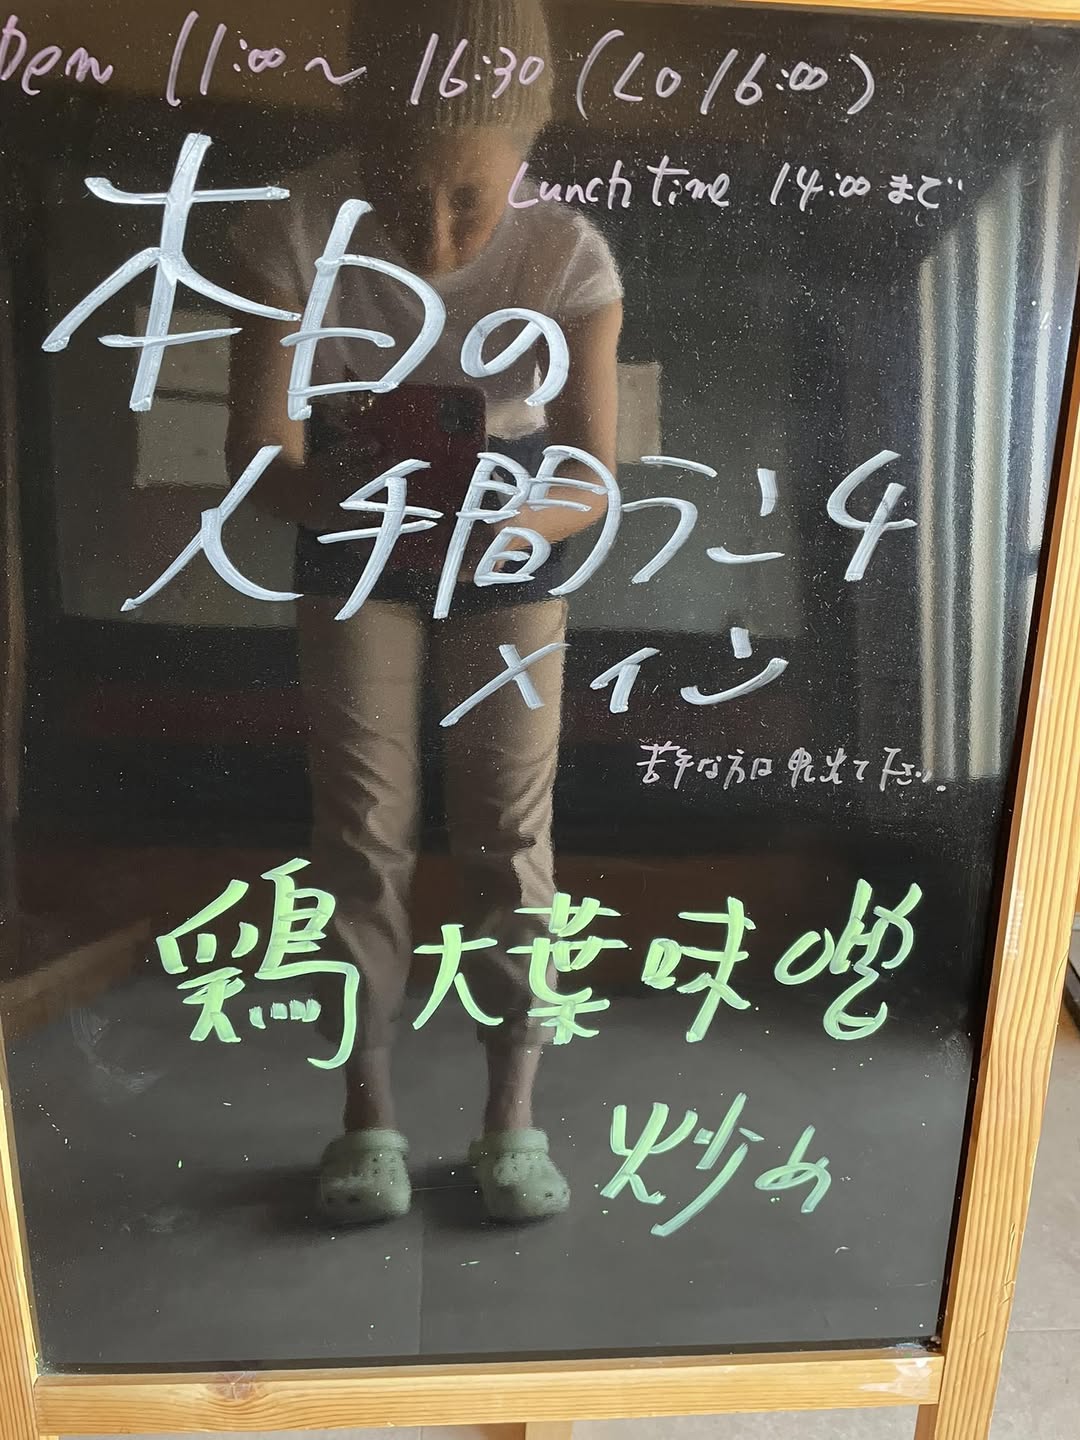 Open 11:00〜16:30 (LO 16:00)
Lunch time 14:00まで
本日の
人手間ランチ
メイン
苦手な方は申し出て下さい。
鶏大葉味噌
炒め